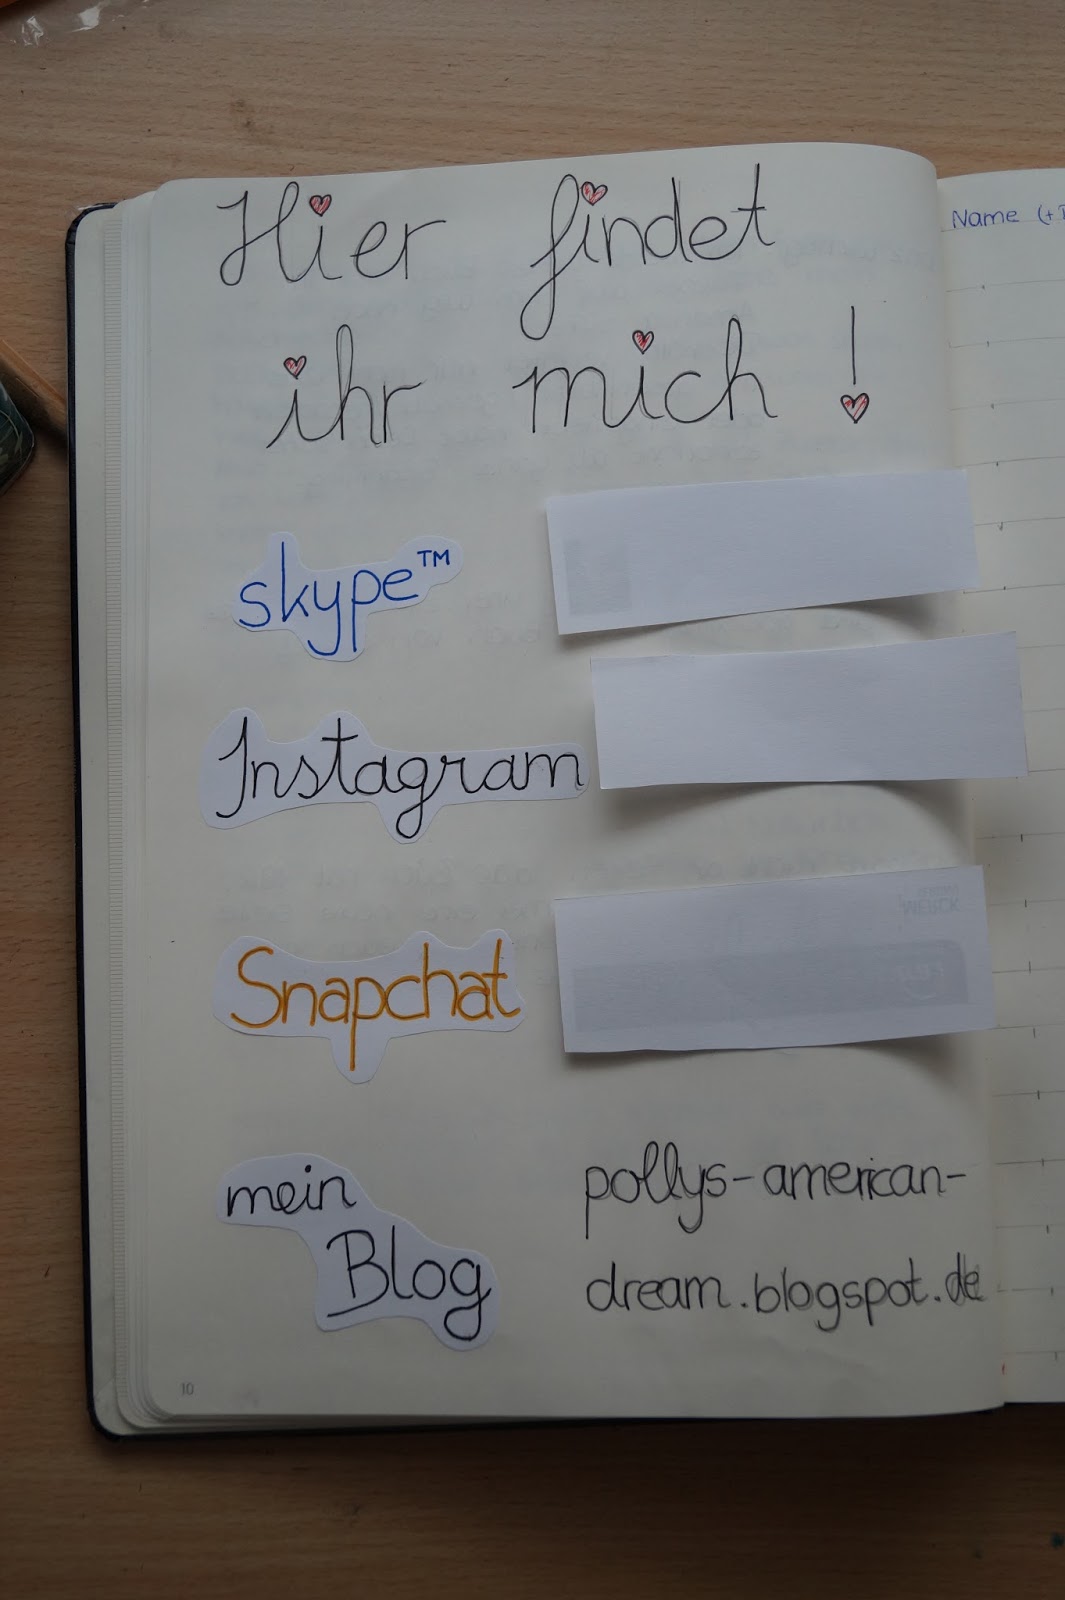 Hier findet
ihr mich!
skype™
Instagram
Snapchat
mein
Blog
pollys-american-
dream.blogspot.de
10
Name (+